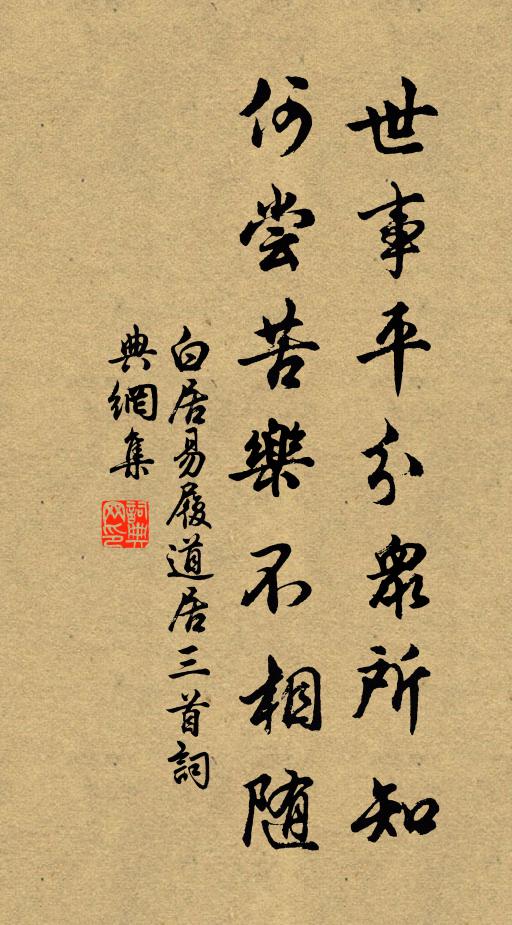 世事平分衆所知
何尝苦樂不相随
白居易履道居三首詞
典網集
詞典网印